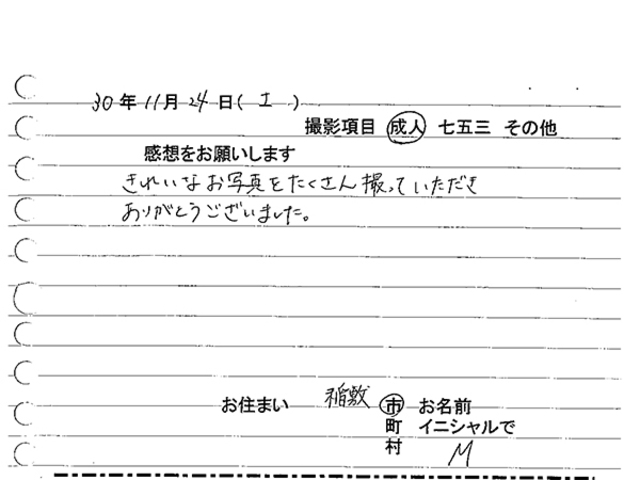 30年11月24日(土)
撮影項目 成人 七五三 その他
感想をお願いします
きれいなお写真をたくさん撮っていただき
ありがとうございました。
お住まい 稲敷 市 お名前
町 イニシャルで
村 M